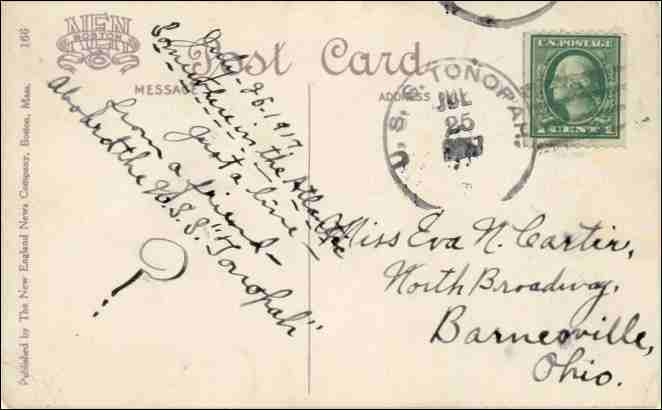 NEN
BOSTON
166
Post Card
MESSAGE
ADDRESS ONLY
Published by The New England News Company, Boston, Mass.
U.S. POSTAGE
1 CENT 1
U.S.S. TONOPAH.
JUL
25
July-26-1917
Somewhere in the Atlantic
Just a line -
from a friend -
Aboard the U.S.S. "Tonopah"
?
Miss Eva N. Carter,
North Broadway,
Barnesville,
Ohio.